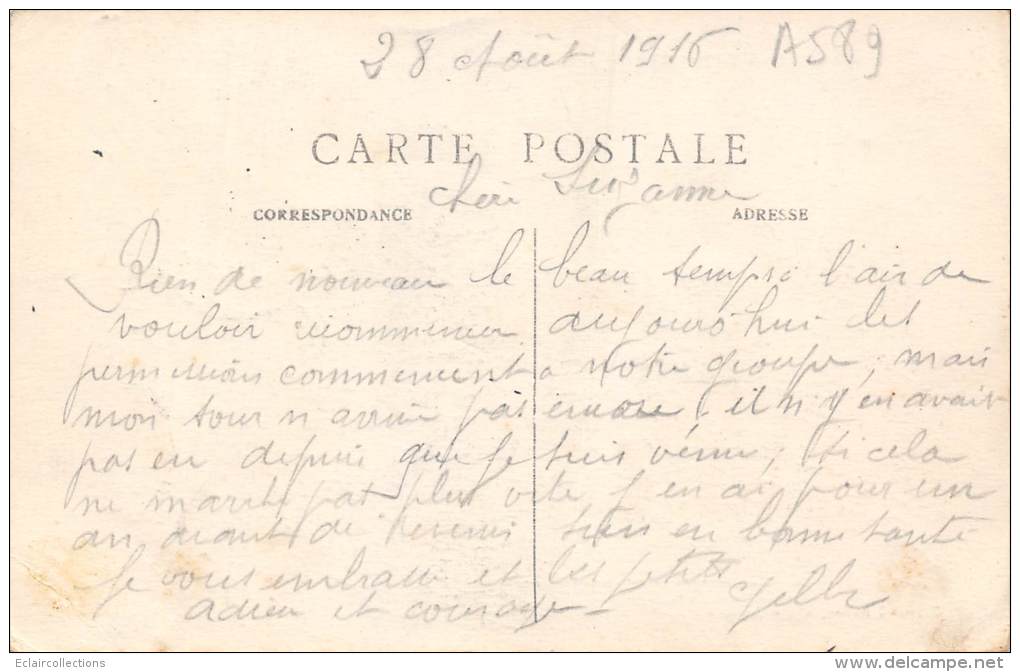 28 Août 1916 A589
CARTE POSTALE
Chère Suzanne
CORRESPONDANCE ADRESSE
Rien de nouveau le beau temps à l'air de
vouloir recommencer aujourd'hui les
permissions commencent a notre groupe, mais
mon tour n'arrive pas encore, il n'y en avait
pas eu depuis que je suis venu, si cela
ne marche pas plus vite j'en ai pour un
an avant de revenir suis en bonne santé
Je vous embrasse et les petits
adieu et courage
Eclaircollections
www.delcampe.net